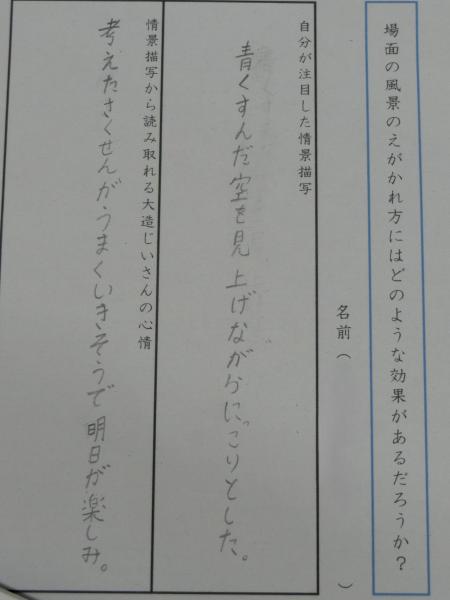 場面の風景のえがかれ方にはどのような効果があるだろうか？
名前（　　　）
自分が注目した情景描写
青くすんだ空を見上げながらにっこりとした。
情景描写から読み取れる大造じいさんの心情
考えたさくせんがうまくいきそうで明日が楽しみ。